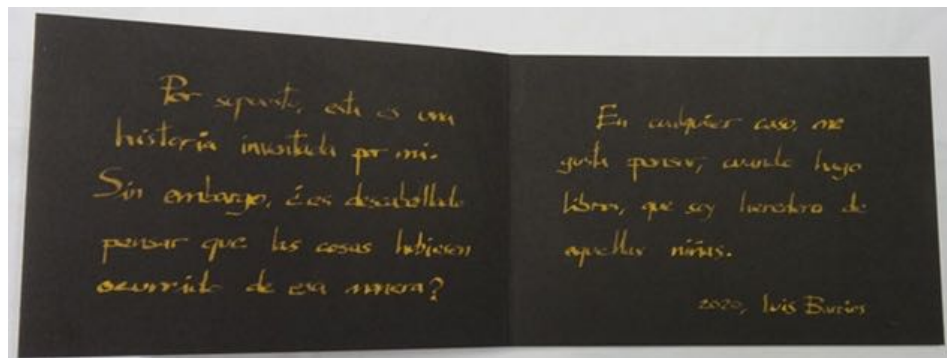 Por supuesto, esta es una
historia inventada por mí.
Sin embargo, ¿es descabellado
pensar que las cosas hubiesen
ocurrido de esa manera?
En cualquier caso, me
gusta pensar, cuando hago
libros, que soy heredero de
aquellas niñas.
2020, Luis